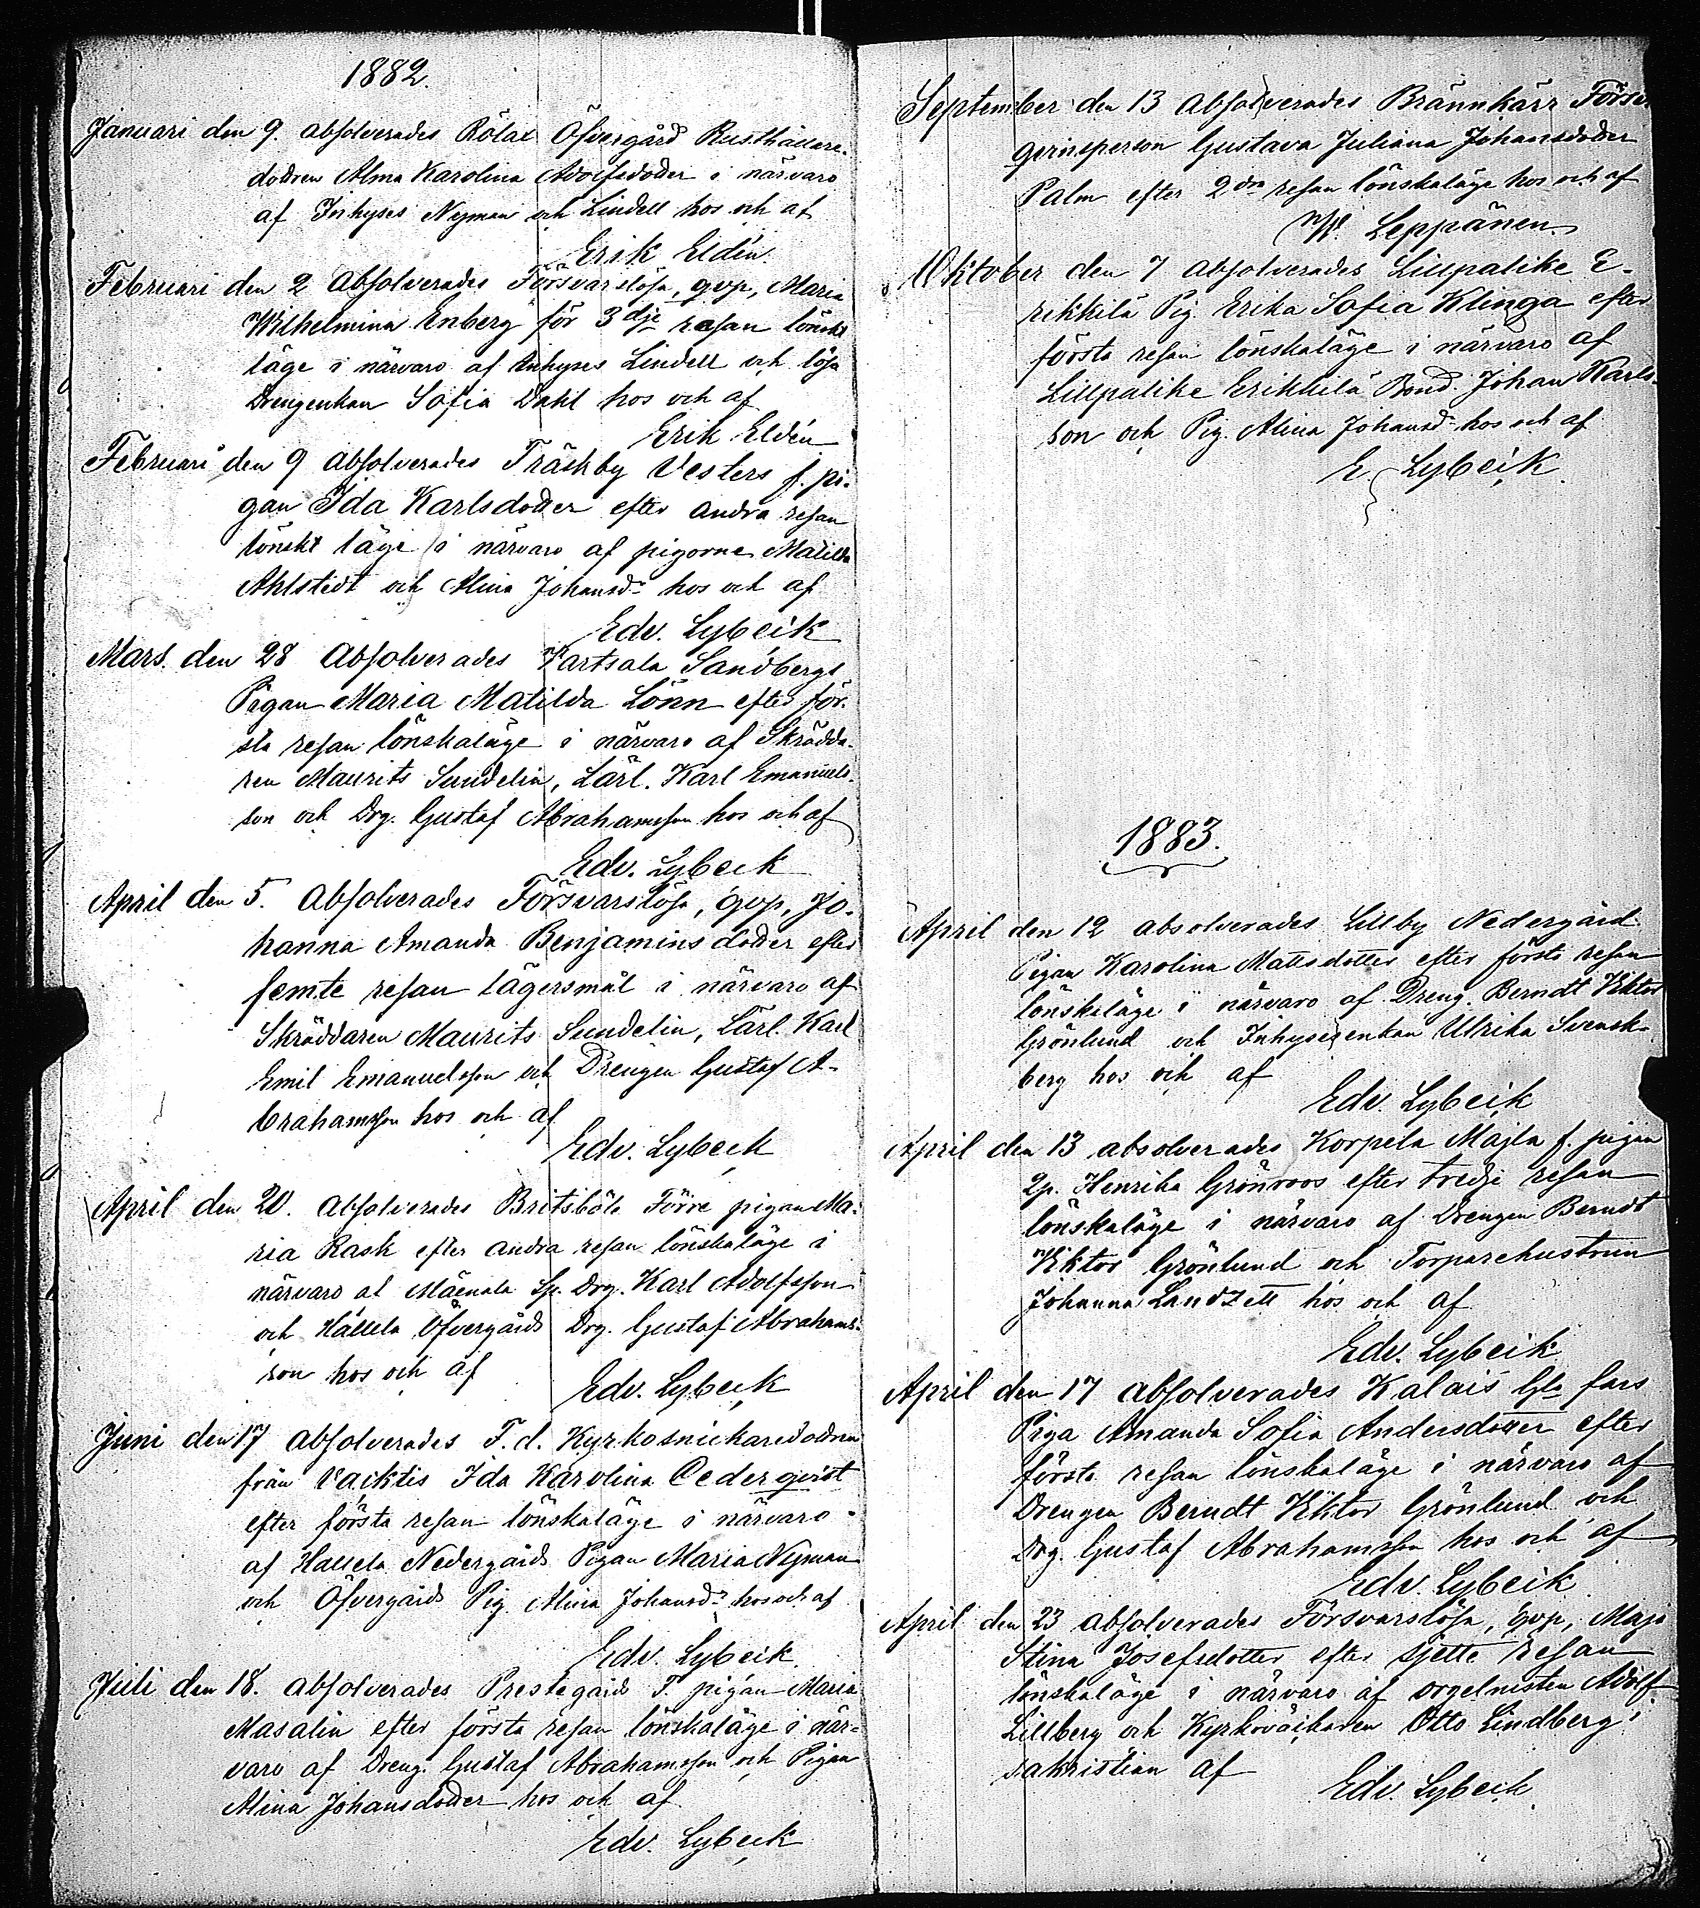 1882.
Januari den 9. absolverades Rölax Öfvergård Rusthållare-
dottren Alma Karolina Adolfsdotter i närvaro
af Inhyses Nyman och Lindell hos och af
Erik Eldén
Februari den 2 absolverades Försvarslösa, qvp, Maria
Wilhelmina Enberg för 3dje resan lönska
läge i närvaro af Inhyses Lindell och lösa
Drengenkan Sofia Dahl hos och af
Erik Eldén
Februari den 9 absolverades Träskby Vesters f. pi-
gan Ida Karlsdotter efter andra resan
lönskt läge i närvaro af pigorne Matilda
Ahlstedt och Alina Johansdr hos och af
Edv. Lybeck
Mars. den 28 absolverades Kartsala Sandbergs
Pigan Maria Matilda Lönn efter för-
sta resan lönskaläge i närvaro af Skrädda-
ren Maurits Sundelin, Lärl. Karl Emanuels-
son och Drg. Gustaf Abrahamsson hos och af
Edv. Lybeck
April den 5. absolverades Försvarslösa, qvp, Jo-
hanna Amanda Benjaminsdotter efter
femte resan lägersmål i närvaro af
Skräddaren Maurits Sundelin, Lärl. Karl
Emil Emanuelsson och Drengen Gustaf A-
brahamsson hos och af
Edv. Lybeck
April den 20. absolverades Britsböle Förre pigan Ma-
ria Rask efter andra resan lönskaläge i
närvaro af Drg. Karl Adolfsson
och Hallela Öfvergårds Drg. Gustaf Abrahams-
son hos och af
Edv. Lybeck
Juni den 17 absolverades F. d. Kyrkosnickaredottren
från Ida Karolina Cederqvist
efter första resan lönskaläge i närvaro
af Hallela Nedergårds Pigan Maria Nyman
och Öfvergårds Pig. Alina Johansdr hos och af
Edv. Lybeck
Juli den 18. absolverades Prestegårds F. pigan Maria
Masalin efter första resan lönskaläge i när-
varo af Dreng. Gustaf Abrahamsson och Pigan
Alina Johansdotter hos och af
Edv. Lybeck
September den 13 absolverades Brännkärr
qvinsperson Gustava Juliana Johansdotter
Palm efter 2dra resan lönskaläge hos och af
W. Leppänen
Oktober den 7 absolverades Lillpalike E-
rikkilä Pig. Erika Sofia Klinga efter
första resan lönskaläge i närvaro af
Lillpalike Erikkilä Bond. Johan Karls-
son och Pig. Alina Johansdr hos och af
E. Lybeck
1883.
April den 12 absolverades Lillby Nedergård
Pigan Karolina Mattsdotter efter första resan
lönskaläge i närvaro af Dreng. Berndt Viktor
Grönlund och Inhysesenkan Ulrika Svensk-
berg hos och af
Edv. Lybeck
April den 13 absolverades Korpela Majla f. pigan
qp. Henrika Grönroos efter tredje resan
lönskaläge i närvaro af Drengen Berndt
Viktor Grönlund och Torparehustrun
Johanna Landzett hos och af
Edv. Lybeck
April den 17 absolverades Kalais fars
Piga Amanda Sofia Andersdotter efter
första resan lönskaläge i närvaro af
Drengen Berndt Viktor Grönlund och
Drg. Gustaf Abrahamsson hos och af
Edv. Lybeck
April den 23 absolverades Försvarslösa, qvp, Maja
Stina Josefsdotter efter sjette resan
lönskaläge i närvaro af orgelnisten Adolf
Lillberg och Kyrkoväktaren Otto Lindberg i
sakristian af
Edv. Lybeck